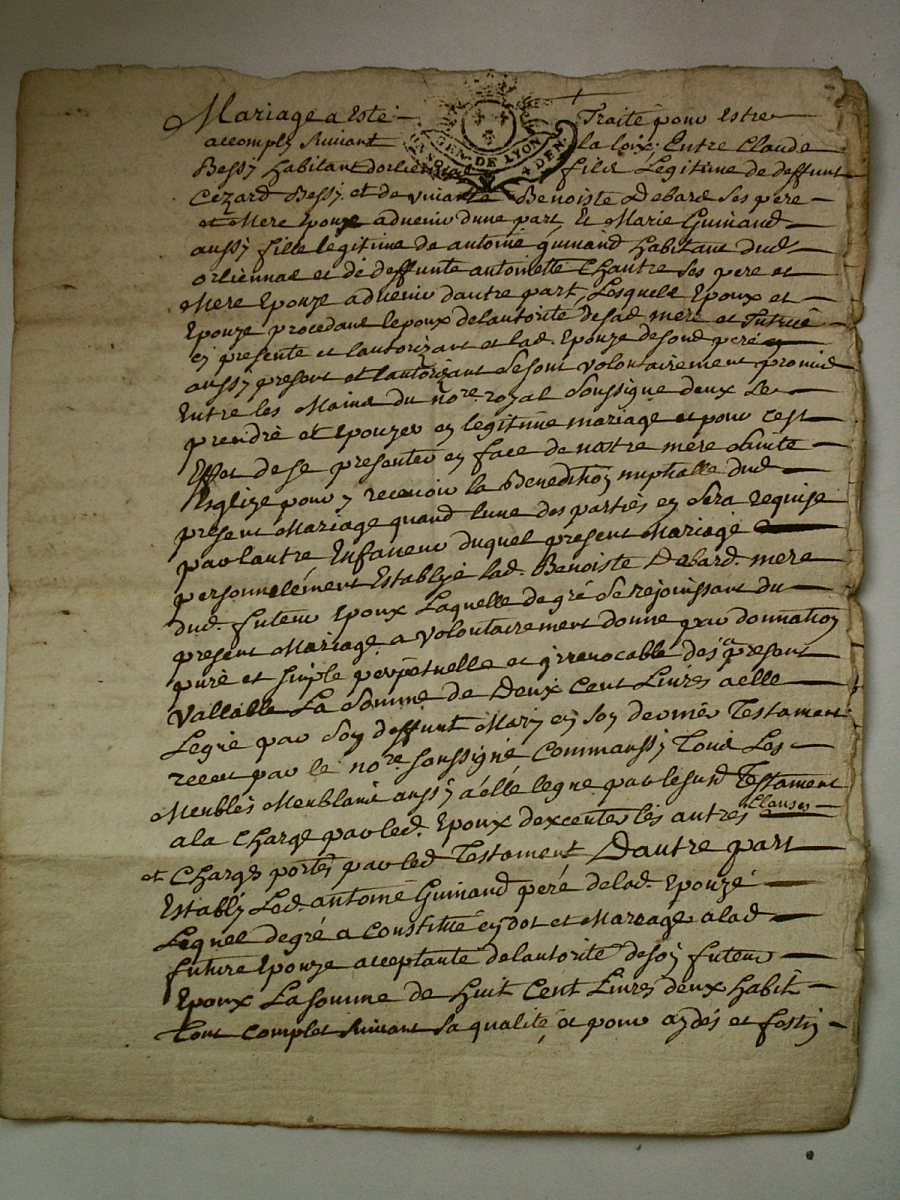 Mariage a Esté Traité pour estre
accomply suivant la loix Entre Claude
Bessy habitant dorliennas fils Legitime de deffunt
Cezard Bessy et de vivante Benoiste Debard ses pere
et Mere Epoux advenir dune part, Et Marie Guinand
aussy fille legitime de antoine guinand habitant dud
orliennas et de deffunte antoinette Chantre ses pere et
Mere Epouze advenir dautre part, Lesquels Epoux et
Epouze procedant lepoux delautorité desad. mere et Tutrice
cy presente et lautorizant et lad. Epouze desond peré
aussy present et lautorizant se sont volontairement promis
Entre les Mains du nore. royal soussigne deux se
prendre et epouzer en legitime mariage et pour cest
Effet de se presenter en face de nostre mere sainte
Esglize pour y recevoir la Benediction nuptialle dud
present Mariage quand lune des parties en sera requise
par lautre Enfaveur duquel present Mariage
personnelement Establye lad. Benoiste Debard. mere
dud. futeur Epoux Laquelle de gré se rejouissant du
present Mariage a volontairement donne par donnation
pure et simple perpetuelle et yrrevocable des a present
Vallable La somme de Deux Cent Livres a elle
Legué par son deffunt Mary en son dernier Testament
receu par le nore. soussigné Comm'aussy Tous Les
Meublés Meublans aussy a elle legue par lesusd Testament
a la Charge par led. Epoux dexcenter les autres Clauses
et Charges portes par led Testament Dautre part
Estably Led. antoine Guinand peré delad. Epouze
Lequel de gré a Constitué en dot et Mareage a lad
future Epouze acceptante delautorité deson futeur
Epoux La somme de Huit Cent Livres deux habit
Tout complet suivant sa qualité, et pour aydés et festin
GEN. DE LYON
4 DEN.